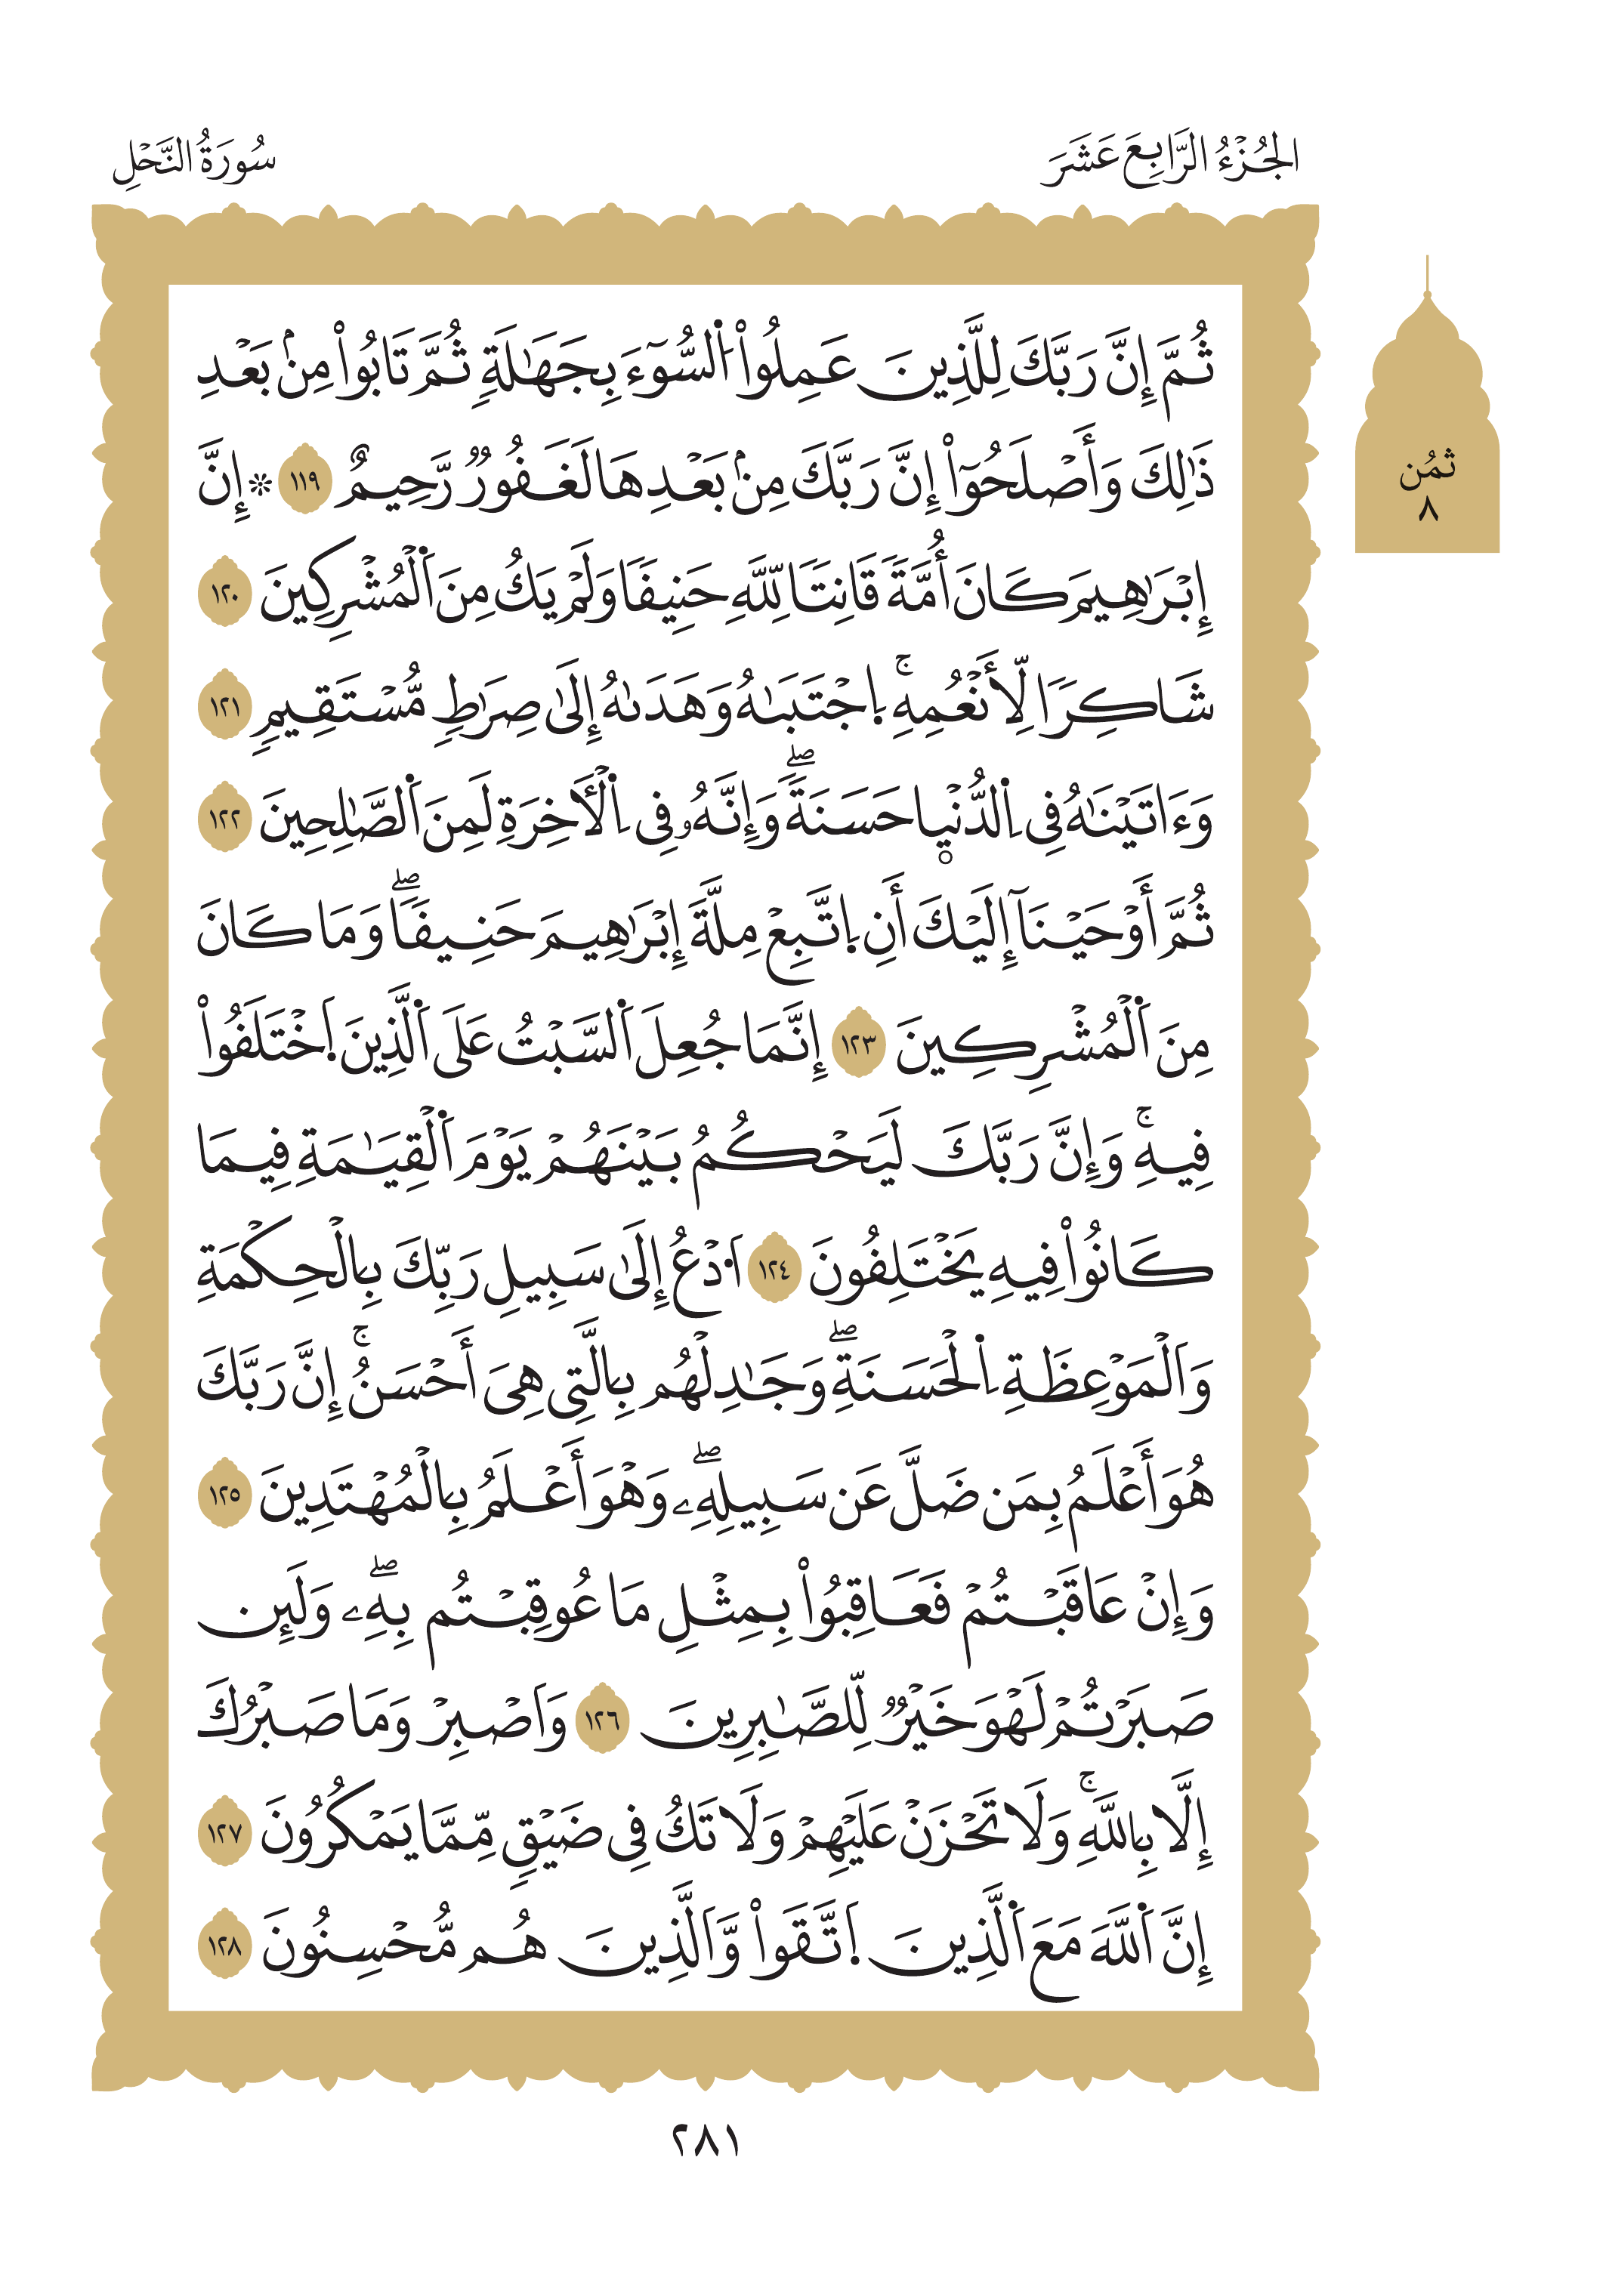 الجُزْءُ الرَّابِعَ عَشَرَ
سُورَةُ النَّحْلِ
ثُمَّ إِنَّ رَبَّكَ لِلَّذِينَ عَمِلُواْ اُ۬لسُّوٓءَ بِجَهَٰلَةٖ ثُمَّ تَابُواْ مِنۢ بَعْدِ
ذَٰلِكَ وَأَصْلَحُوٓاْ إِنَّ رَبَّكَ مِنۢ بَعْدِهَا لَغَفُورٞ رَّحِيمٌ ١١٩ ۞ إِنَّ
إِبْرَٰهِيمَ كَانَ أُمَّةٗ قَانِتٗا لِّلَّهِ حَنِيفٗا وَلَمْ يَكُ مِنَ اَ۬لْمُشْرِكِينَ ١٢٠
شَاكِرٗا لِّأَنْعُمِهِۚ اِ۪جْتَبَىٰهُ وَهَدَىٰهُ إِلَىٰ صِرَٰطٖ مُّسْتَقِيمٖ ١٢١
وَءَاتَيْنَٰهُ فِى اِ۬لدُّنْي۪ا حَسَنَةٗۖ وَإِنَّهُۥ فِى اِ۬لْأٓخِرَةِ لَمِنَ اَ۬لصَّٰلِحِينَ ١٢٢
ثُمَّ أَوْحَيْنَآ إِلَيْكَ أَنِ اِ۪تَّبِعْ مِلَّةَ إِبْرَٰهِيمَ حَنِيفٗاۖ وَمَا كَانَ
مِنَ اَ۬لْمُشْرِكِينَ ١٢٣ إِنَّمَا جُعِلَ اَ۬لسَّبْتُ عَلَى اَ۬لَّذِينَ اَ۪خْتَلَفُواْ
فِيهِۚ وَإِنَّ رَبَّكَ لَيَحْكُمُ بَيْنَهُمْ يَوْمَ اَ۬لْقِيَٰمَةِ فِيمَا
كَانُواْ فِيهِ يَخْتَلِفُونَ ١٢٤ اَ۟دْعُ إِلَىٰ سَبِيلِ رَبِّكَ بِالْحِكْمَةِ
وَالْمَوْعِظَةِ اِ۬لْحَسَنَةِۖ وَجَٰدِلْهُم بِالَّتِى هِىَ أَحْسَنُۚ إِنَّ رَبَّكَ
هُوَ أَعْلَمُ بِمَن ضَلَّ عَن سَبِيلِهِۦۖ وَهْوَ أَعْلَمُ بِالْمُهْتَدِينَ ١٢٥
وَإِنْ عَاقَبْتُمْ فَعَاقِبُواْ بِمِثْلِ مَا عُوقِبْتُم بِهِۦۖ وَلَئِن
صَبَرْتُمْ لَهْوَ خَيْرٞ لِّلصَّٰبِرِينَ ١٢٦ وَاَصْبِرْ وَمَا صَبْرُكَ
إِلَّا بِاللَّهِۚ وَلَا تَحْزَنْ عَلَيْهِمْ وَلَا تَكُ فِى ضَيْقٖ مِّمَّا يَمْكُرُونَ ١٢٧
إِنَّ اَ۬للَّهَ مَعَ اَ۬لَّذِينَ اَ۪تَّقَواْ وَّالَّذِينَ هُم مُّحْسِنُونَ ١٢٨
ثُمُن
٨
٢٨١